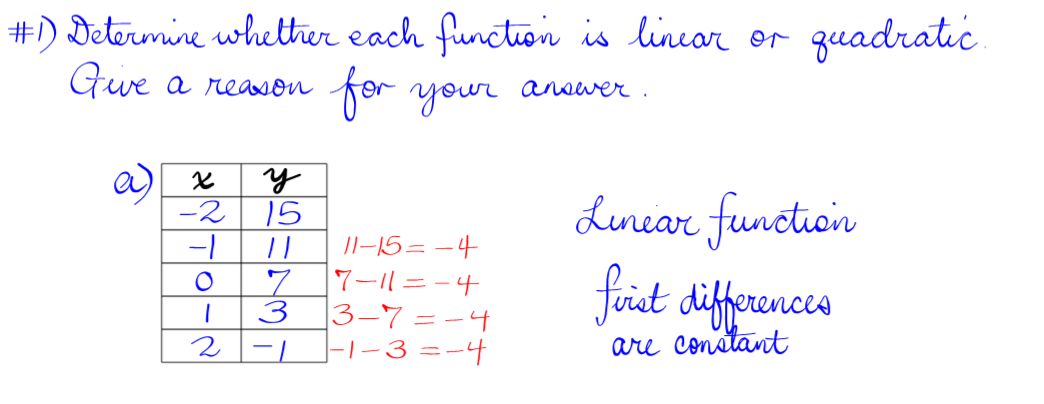 #1) Determine whether each function is linear or quadratic.
Give a reason for your answer.
a) x y
-2 15
-1 11 11-15=-4
0 7 7-11=-4
1 3 3-7=-4
2 -1 -1-3=-4
Linear function
first differences
are constant